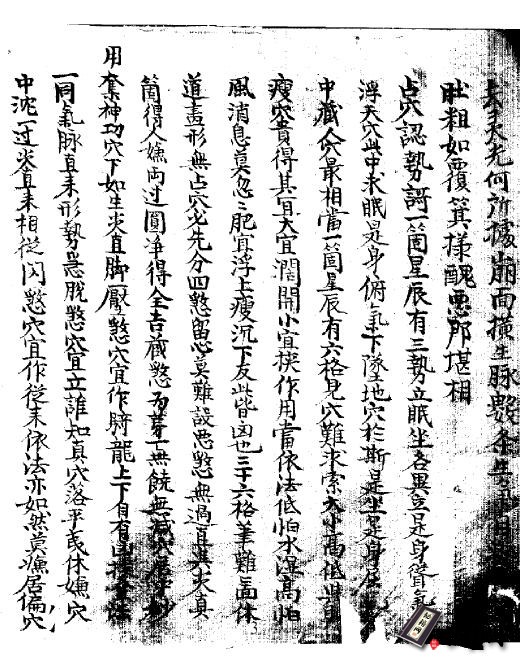 天光何所據崩面橫生脉數条
肚粗如覆箕樣醜悪那堪相
占穴認勢訶一箇星辰有三勢立眠坐各異立是身聳氣
浮天穴此中求眠是身俯氣下墜地穴於斯是坐是身屈
中藏人穴最相當一箇星辰有六格見穴難求索大小高低
瘦穴貴得其宜大宜濶開小宜挾作用當依法低怕水湿高怕
風消息莫忽忽肥宜浮上瘦沉下反此皆凶也三十六格筆難啚休
道畫形無占穴必先分四憗留心莫難設悪憗無過直其夫真
箇得人嫌両边圓淨得全吉藏憗為尋一無饒無減
用奪神功穴下如生炎直脚厭憗穴宜作騎龍上下自有
一同氣脉直來形勢急脫憗穴宜立誰知真穴落平或休嫌穴
中沈一边炎直來相從閃憗穴宜作從來依法亦如然莫嫌居偏穴